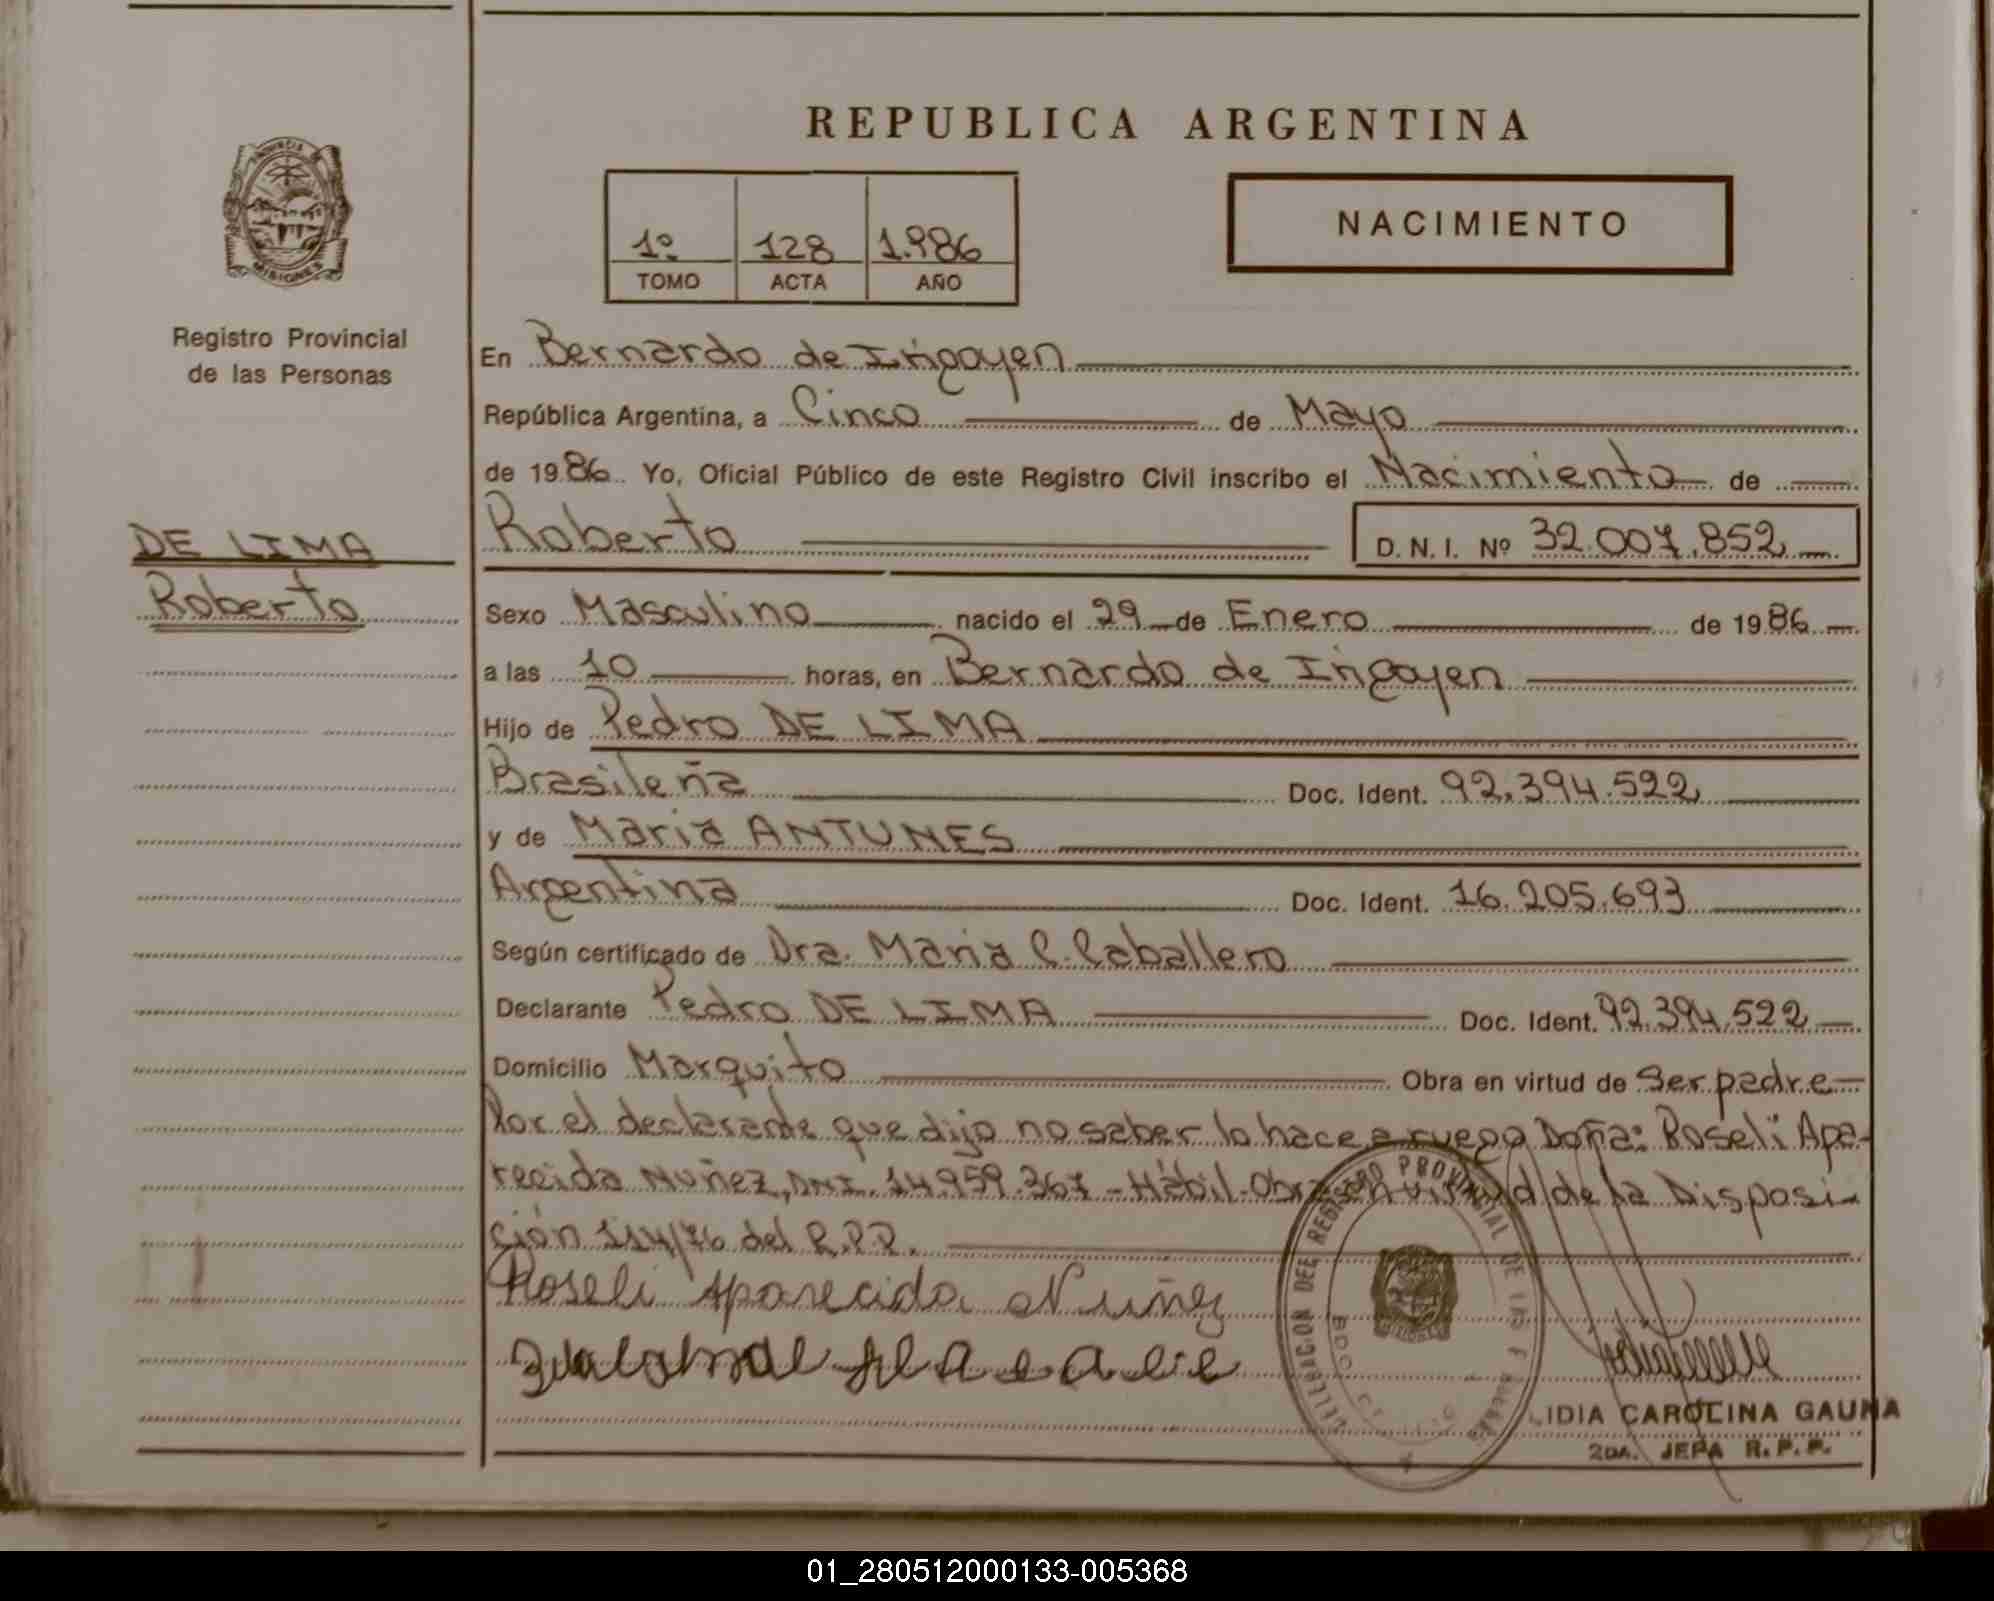 REPUBLICA ARGENTINA
PROVINCIA DE
MISIONES
Registro Provincial
de las Personas
1º 128 1.986
TOMO ACTA AÑO
NACIMIENTO
DE LIMA
Roberto
En Bernardo de Irigoyen
República Argentina, a Cinco de Mayo
de 1986 Yo, Oficial Público de este Registro Civil inscribo el Nacimiento de
Roberto D.N.I. Nº 32.007.852
Sexo Masculino nacido el 29 de Enero de 1986
a las 10 horas, en Bernardo de Irigoyen
Hijo de Pedro DE LIMA
Brasileña Doc. Ident. 92.394.522
y de Maria ANTUNES
Argentina Doc. Ident. 16.205.693
Según certificado de Dra. Maria C. Caballero
Declarante Pedro DE LIMA Doc. Ident. 92.394.522
Domicilio Marquito Obra en virtud de Ser padre
Por el declarante que dijo no saber lo hace a ruego Doña: Roseli Apa-
recida Nuñez, DNI. 14.959.367 - Hábil - Obra en virtud de la Disposi-
ción 114/76 del R.P.P.
Roseli Aparecida Nuñez
REGISTRO PROVINCIAL DE
MISIONES
LIDIA CAROLINA GAUNA
2DA. JEFA R.P.P.
01_280512000133-005368